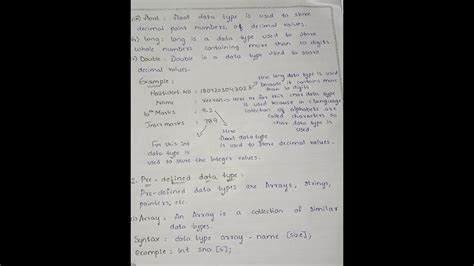 (iii) Float : float data type is used to store
decimal point numbers, of decimal values.
(iv) Long : Long is a data type used to store
whole numbers containing more than 10 digits.
(v) Double : Double is a data type used to store
decimal values.
Example :
Hallticket.No : 1809203043023
Here long data type is used
because it contains more
than 10 digits
Name :
for this char data type
is used because in c language
collection of alphabets are
called characters so
char data type is used.
10th Marks : 9.2
Inter marks : 789
Here
float data type
is used to store decimal values.
For this int
data type is
used to store the integer values.
2. Pre-defined data type :
Pre-defined data types are Arrays, strings,
pointers, etc.
(i) Array : An Array is a collection of similar
data types.
Syntax : data type array - name [size];
example : int sno [5];